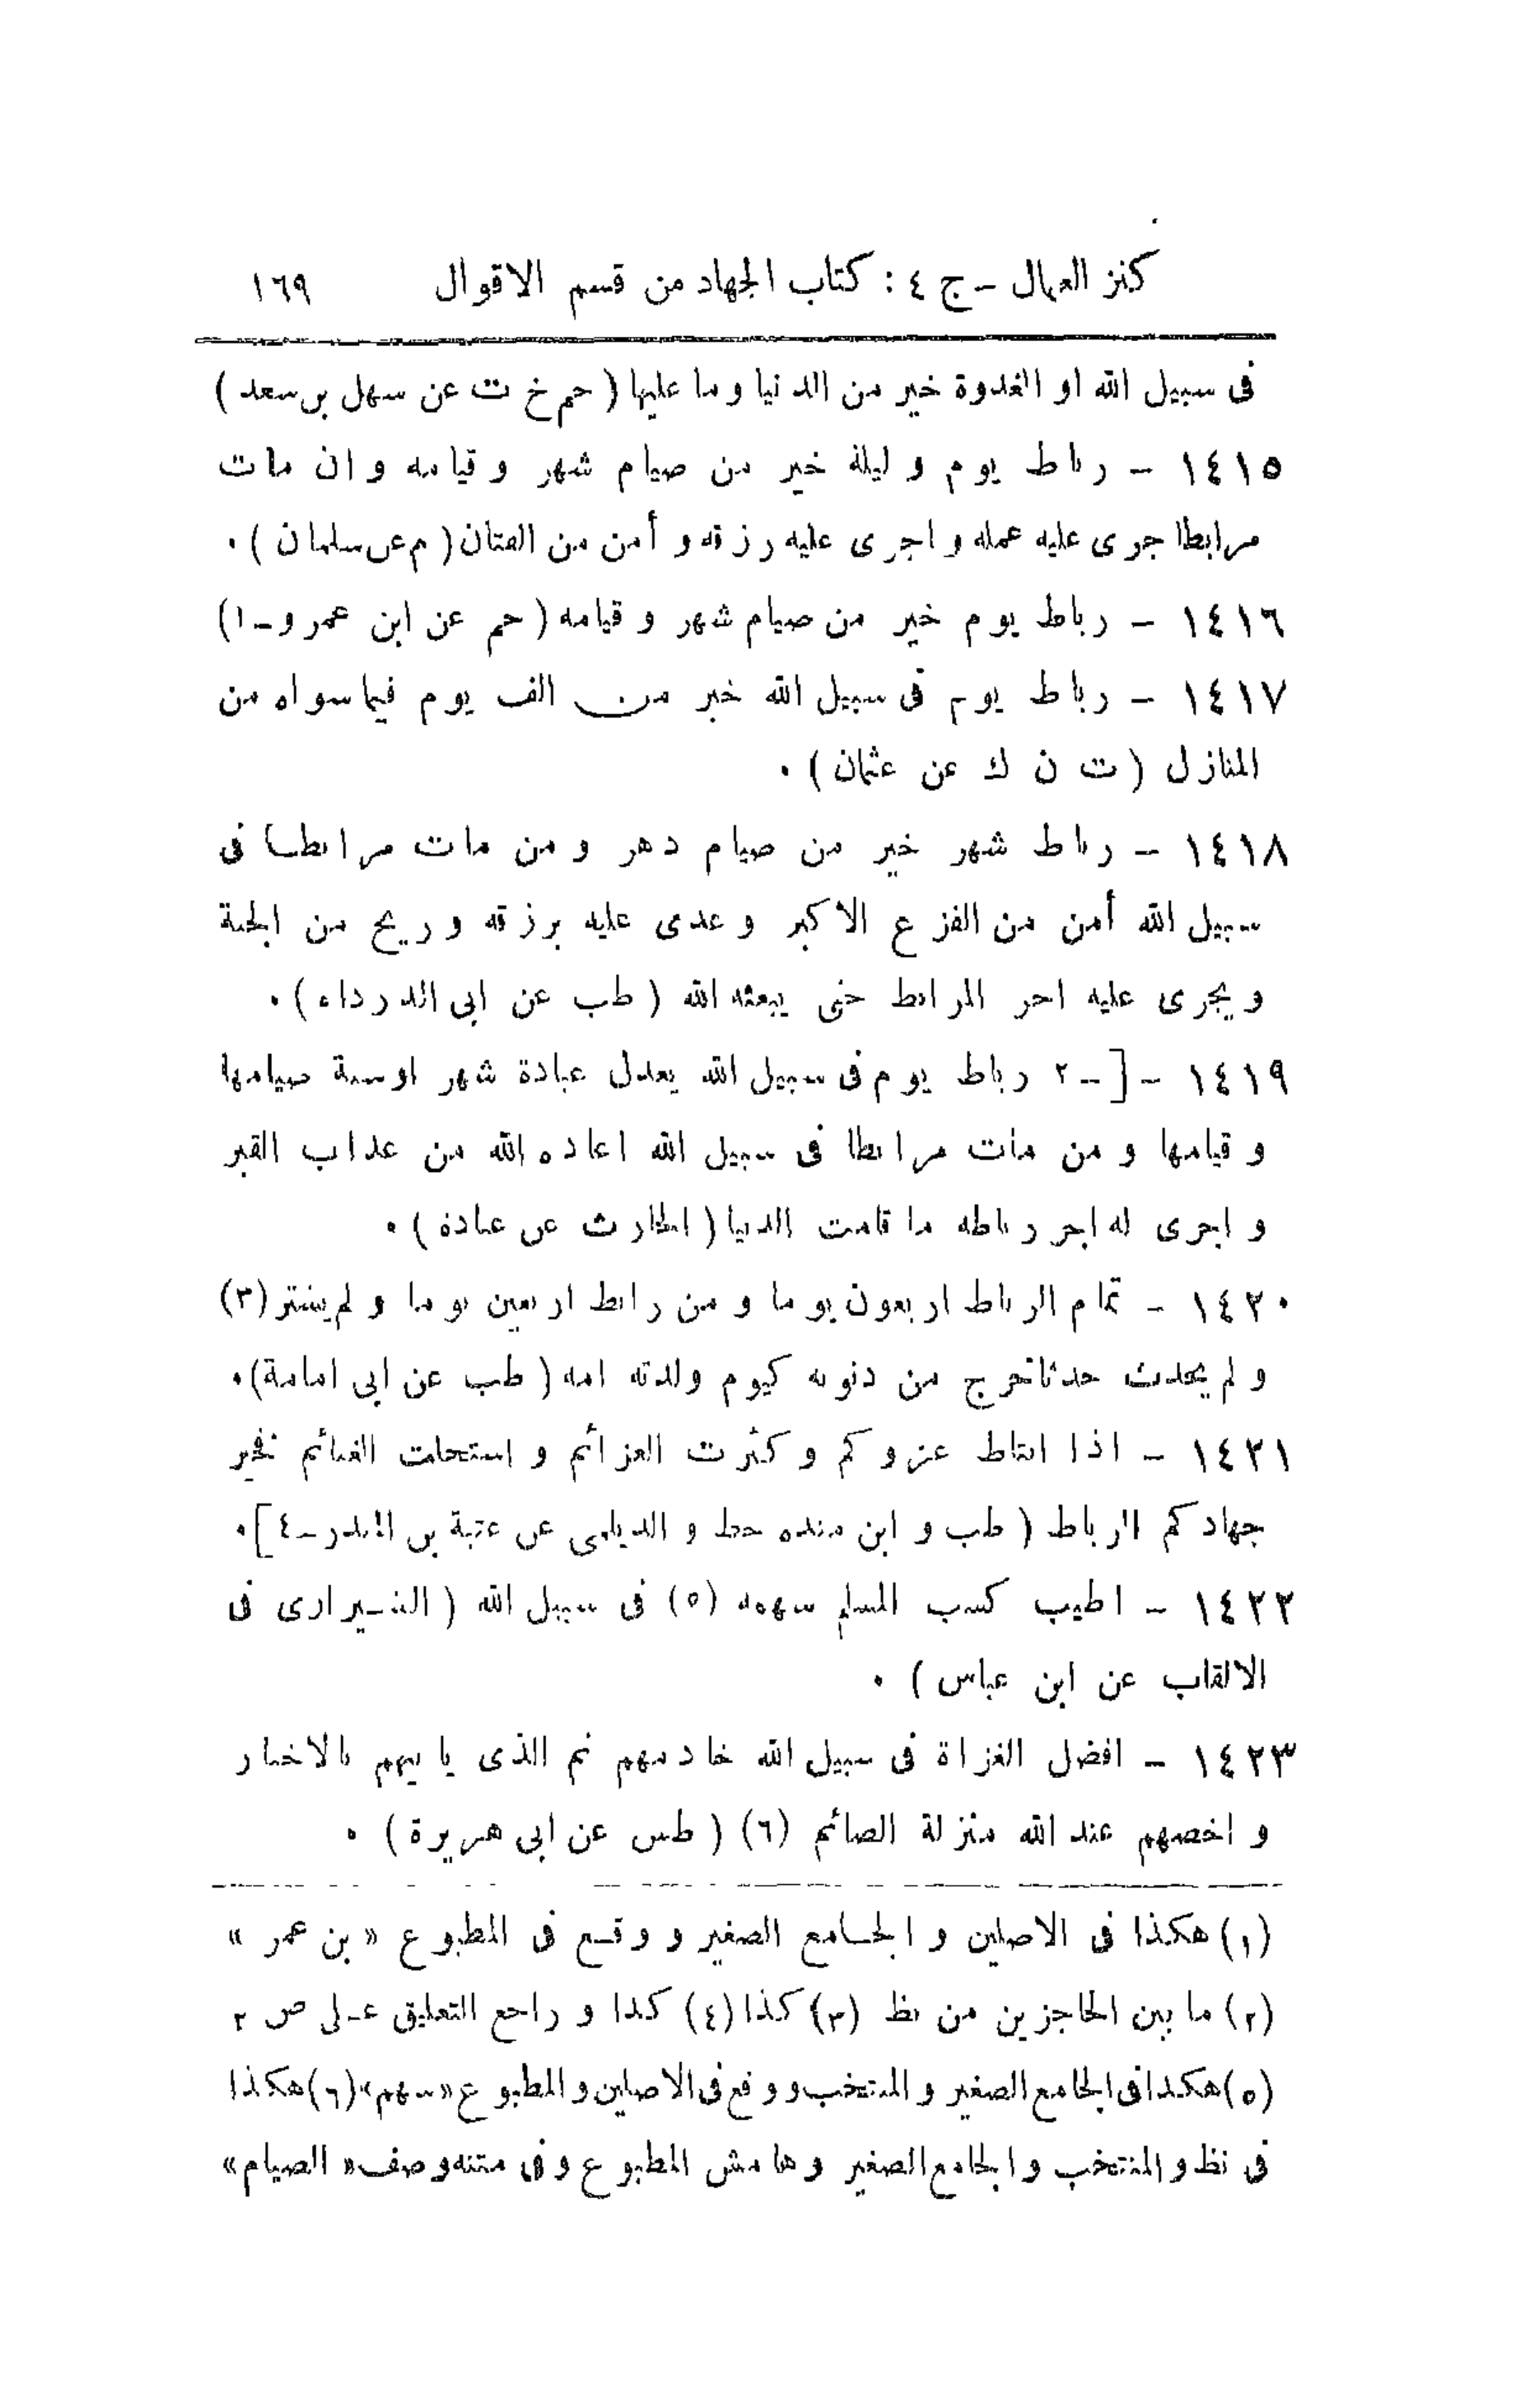 كنز العمال - ج ٤ : كتاب الجهاد من قسم الاقوال ١٦٩
فى سبيل الله او الغدوة خير من الدنيا وما عليها ( حم خ ت عن سهل بن سعد )
١٤١٥ - رباط يوم و ليلة خير من صيام شهر و قيامه و ان مات
مرابطا جرى عليه عمله و اجرى عليه رزقه و أمن من الفتان ( م عن سلمان ) .
١٤١٦ - رباط يوم خير من صيام شهر و قيامه ( حم عن ابن عمرو - ١ )
١٤١٧ - رباط يوم فى سبيل الله خير من الف يوم فيما سواه من
المنازل ( ت ن ك عن عثمان ) .
١٤١٨ - رباط شهر خير من صيام دهر و من مات مرابطا فى
سبيل الله أمن من الفزع الاكبر و غدى عليه برزقه و ريح من الجنة
و يجرى عليه اجر المرابط حتى يبعثه الله ( طب عن ابى الدرداء ) .
١٤١٩ - [ - ٢ رباط يوم فى سبيل الله يعدل عبادة شهر او سنة صيامها
و قيامها و من مات مرابطا فى سبيل الله اعاذه الله من عذاب القبر
و اجرى له اجر رباطه ما قامت الدنيا ( الحارث عن عبادة ) .
١٤٢٠ - تمام الرباط اربعون يوما و من رابط اربعين يوما و لم يشتر (٣)
و لم يحدث حدثا تخرج من ذنوبه كيوم ولدته امه ( طب عن ابى امامة ) .
١٤٢١ - اذا انتاط غزوكم و كثرت العزائم و استحلت الغنائم فخير
جهادكم الرباط ( طب و ابن منده خط و الديلمى عن عتبة بن الندر - ٤ ] .
١٤٢٢ - اطيب كسب المسلم سهمه (٥) فى سبيل الله ( الشيرازى فى
الالقاب عن ابن عباس ) .
١٤٢٣ - افضل الغزاة فى سبيل الله خادمهم ثم الذى ياتيهم بالاخبار
و اخصهم عند الله منزلة الصائم (٦) ( طس عن ابى هريرة ) .
(١) هكذا فى الاصلين و الجامع الصغير و وقع فى المطبوع « بن عمر »
(٢) ما بين الحاجزين من نظ (٣) كذا (٤) كذا و راجع التعليق على ص ٢
(٥) هكذا فى الجامع الصغير و المنتخب و وقع فى الاصلين و المطبوع « سهم » (٦) هكذا
فى نظ و المنتخب و الجامع الصغير و هامش المطبوع و فى متنه و صف « الصيام »